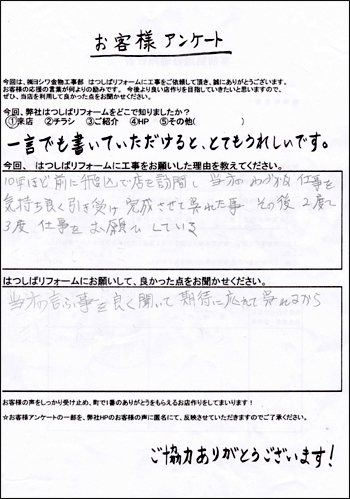 お客様 アンケート
今回は、㈱ヨシワ金物工事部 はつしばリフォームに工事をご依頼して頂き、誠にありがとうございます。
お客様の応援の言葉が何よりの励みです。 今後より良い店作りを目指していきたいと思いますので、
ぜひ、当店を利用して良かった点をお聞かせください。
今回、弊社はつしばリフォームをどこで知りましたか?
①来店 ②チラシ ③ご紹介 ④HP ⑤その他( )
一言でも書いていただけると、とてもうれしいです。
今回、 はつしばリフォームに工事をお願いした理由を教えてください。
10年ほど前に飛込で店を訪問し 当方のわずかな仕事を
気持ち良く引き受け 完成させて呉れた事 その後 2度
3度 仕事を お願いしている
はつしばリフォームにお願いして、良かった点をお聞かせください。
当方の言ふ事を良く聞いて 期待に応えて呉れるから
お客様の声をしっかり受け止め、町で1番のありがとうをもらえるお店作りをしてまいります!
☆お客様アンケートの一部を、弊社HPのお客様の声に匿名にて、反映させていただきますのでご了承ください。
ご協力ありがとうございます!